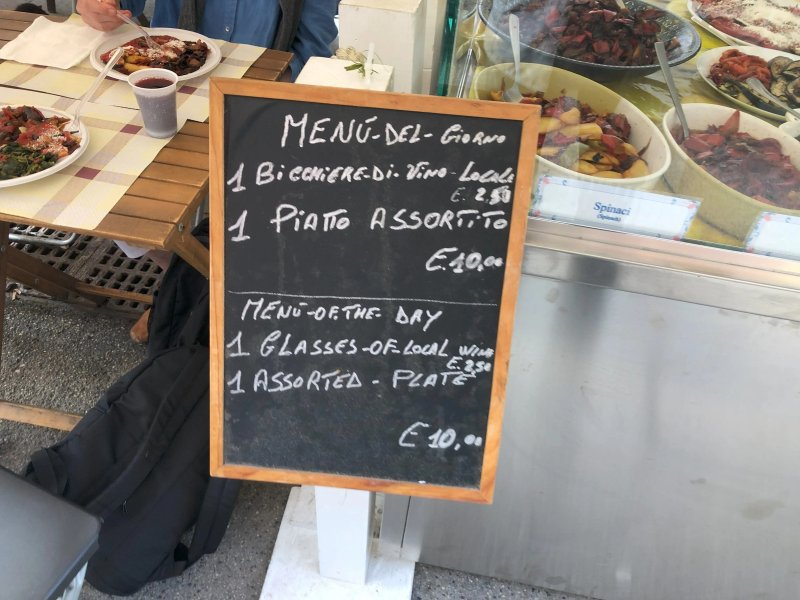 MENÚ-DEL-GIORNO
1 BICCHIERE-DI-VINO-LOCALE
E. 2.50
1 PIATTO ASSORTITO
E.10,00
MENÚ-OF.THE-DAY
1 GLASSES-OF-LOCAL WINE
E. 2.50
1 ASSORTED-PLATE
E 10,00
Spinaci
(Spinach)